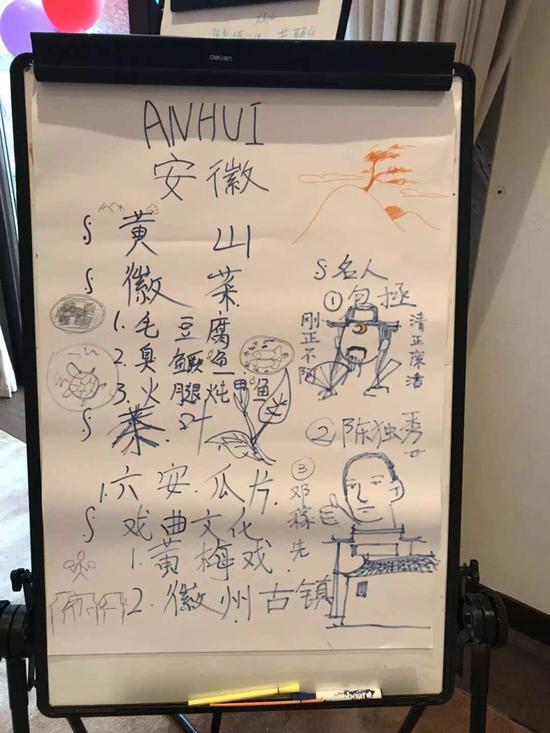 ANHUI
安徽
§ 黄山
§ 徽菜
1. 毛豆腐
2. 臭鳜鱼
3. 火腿炖甲鱼
§ 茶叶
1. 六安瓜片
§ 戏曲文化
1. 黄梅戏
2. 徽州古镇
§ 名人
① 包拯
刚正不阿
清正廉洁
② 陈独秀
③ 邓稼先